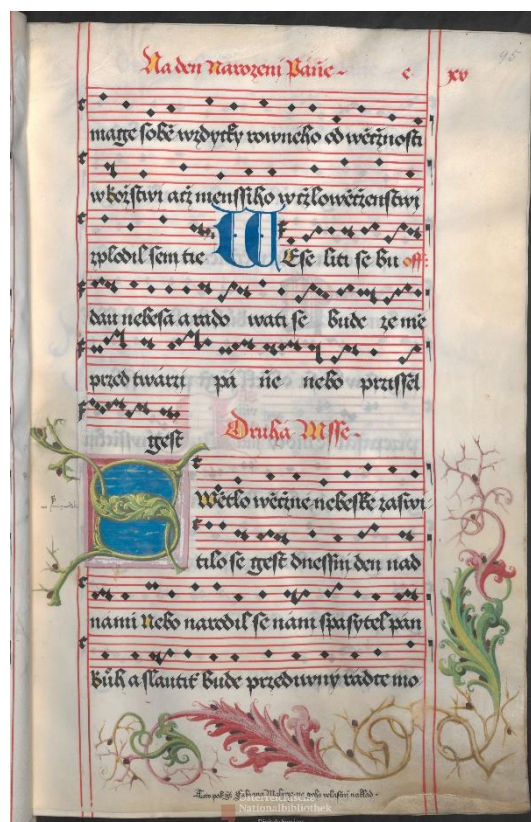 Na den Narozeni Páně · c xv
95
mage sobě wzdytky rowneho od wěcžnosti
w božstwi acž menssiho w cžlowěcženstwi
zplodil sem tie WEse liti se bu off:
dau nebesa a rado wati se bude ze mie
przed twarzi pá ně nebo przissel
gest Druhá Msse ·
SWětlo wěcžne nebeske zaswi
tilo se gest dnessni den nad
námi Nebo narodil se nám spasytel pan
bůh a slautit bude przediwny radce mo
Österreichische
Nationalbibliothek